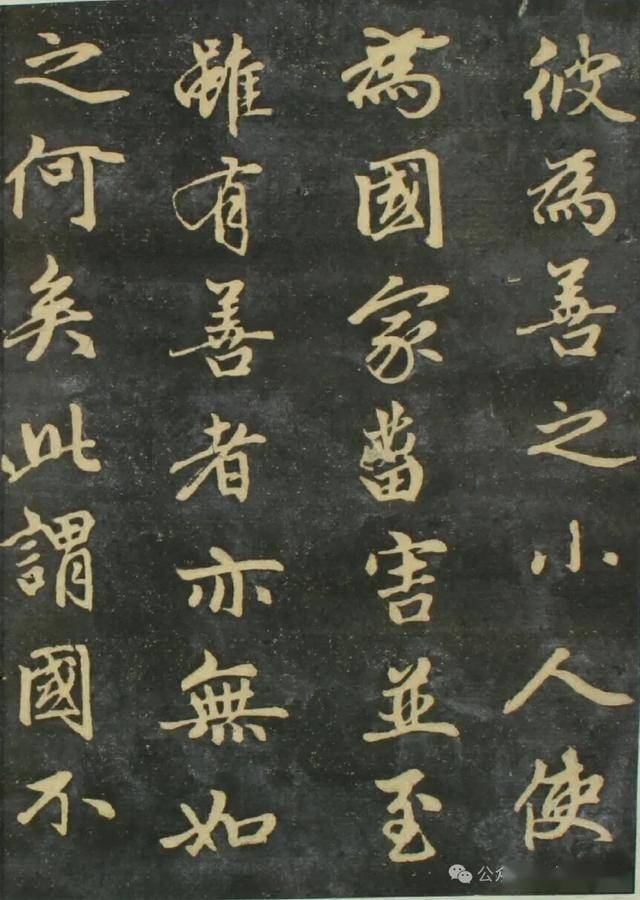 彼為善之小人使
為國家菑害並至
雖有善者亦無如
之何矣此謂國不
公众